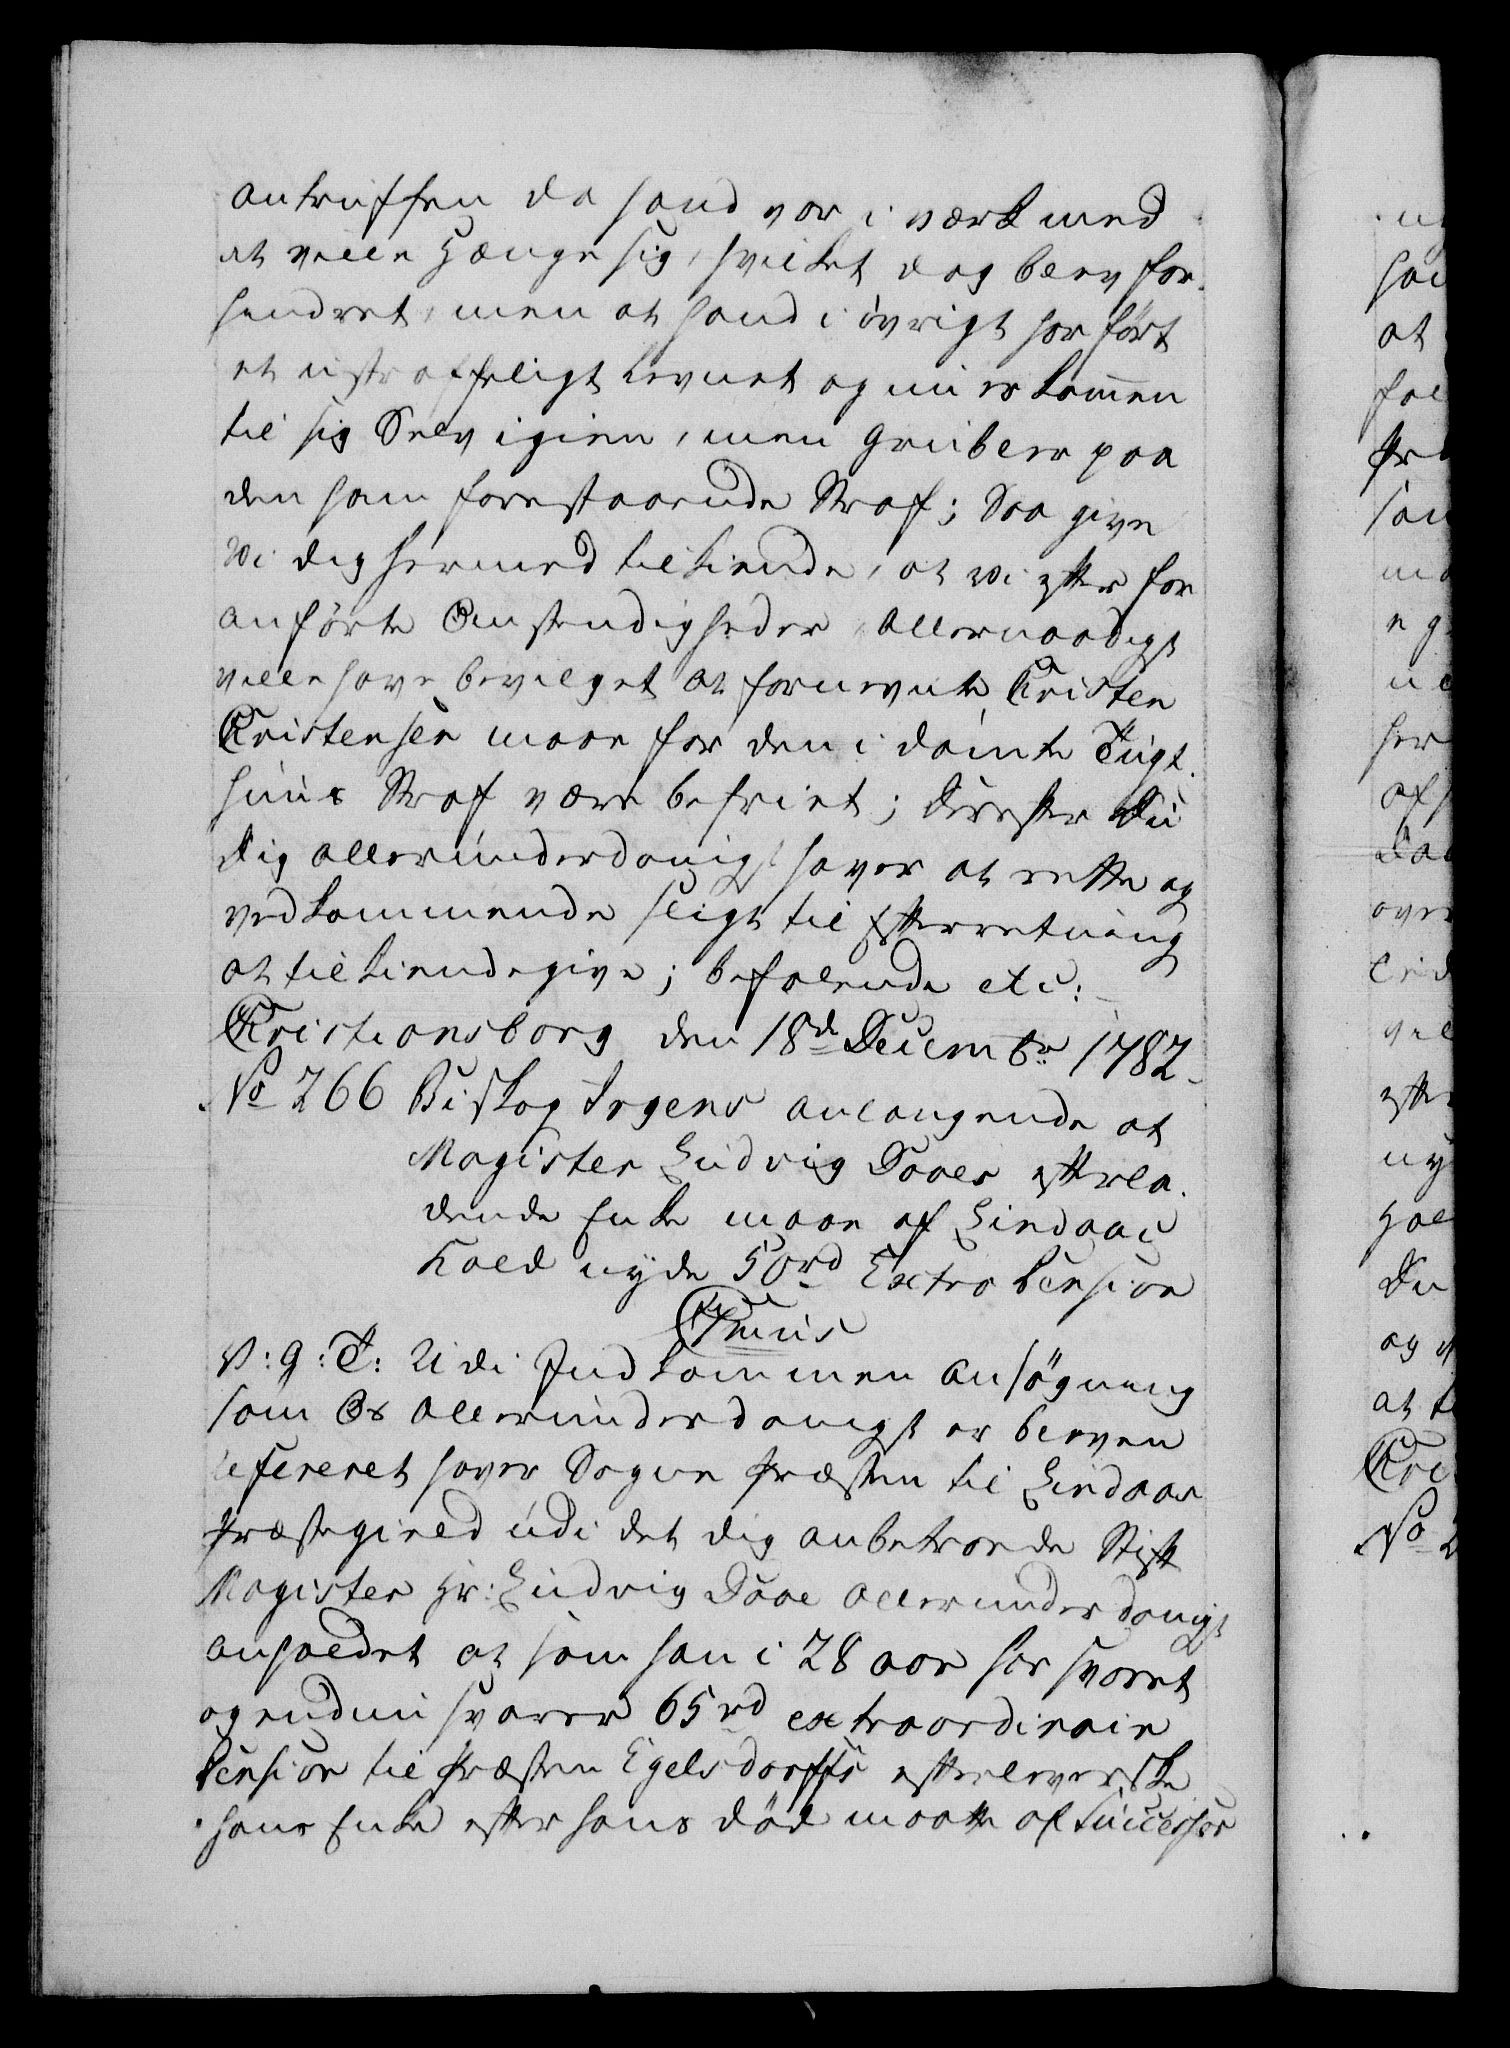 antruffen da hand var i værk med
at ville hænge sig, hvilket dog blev for-
hindret, men at hand i øvrigt har ført
et ustraffeligt Levnet og nu er kom̅en
til sig Selv igien, men grubler paa
den ham forestaaende Straf; Saa give
Wi dig hermed tilkiende, at Wi efter for
anførte Omstendigheder, Allernaadigst
ville have bevilget at fornevnte Christen
Christensen maae for den idømte Tugt-
huus Straf være befriet; Derefter Du
Dig allerunderdanigst haver at rette og
vedkommende sligt til Efterretning
at tilkiendegive; befalende etc:
Christiansborg den 18de Decembr 1782
No 266 Biskop Irgens anlangende at
Magister Ludvig Daaes efterla-
dende Enke maae af Lindaas
Kald nyde 50rd Extra Pension
Annuis
V: g: T: Udi Indkommen Ansøgning
som Os Allerunderdanigst er bleven
refereret haver Sogne Præsten til Lindaas
Præstegield udi det dig anbetroede Stift
Magister Hr: Ludvig Daae Allerunderdanigst
anholdet at som han i 28 aar har svaret
og endnu svarer 65rd extraordinair
Pension til Præsten Egelsdorffs efterleverske
hans Enke efter hans død maatte af Successor